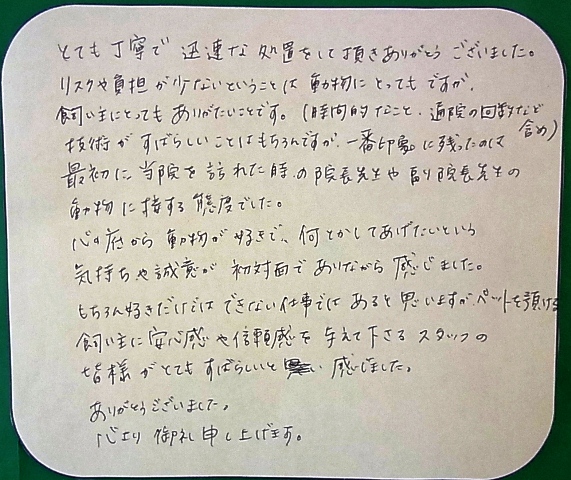 とても丁寧で迅速な処置をして頂きありがとうございました。
リスクや負担が少ないということは動物にとってもですが、
飼い主にとってもありがたいことです。(時間的なこと、通院の回数など含め)
技術がすばらしいことはもちろんですが、一番印象に残ったのは
最初に当院を訪れた時の院長先生や副院長先生の
動物に接する態度でした。
心の底から動物が好きで、何とかしてあげたいという
気持ちや誠意が初対面でありながら感じました。
もちろん好きだけではできない仕事ではあると思いますが、ペットを預ける
飼い主に安心感や信頼感を与えて下さるスタッフの
皆様がとてもすばらしいと感じました。
ありがとうございました。
心より御礼申し上げます。